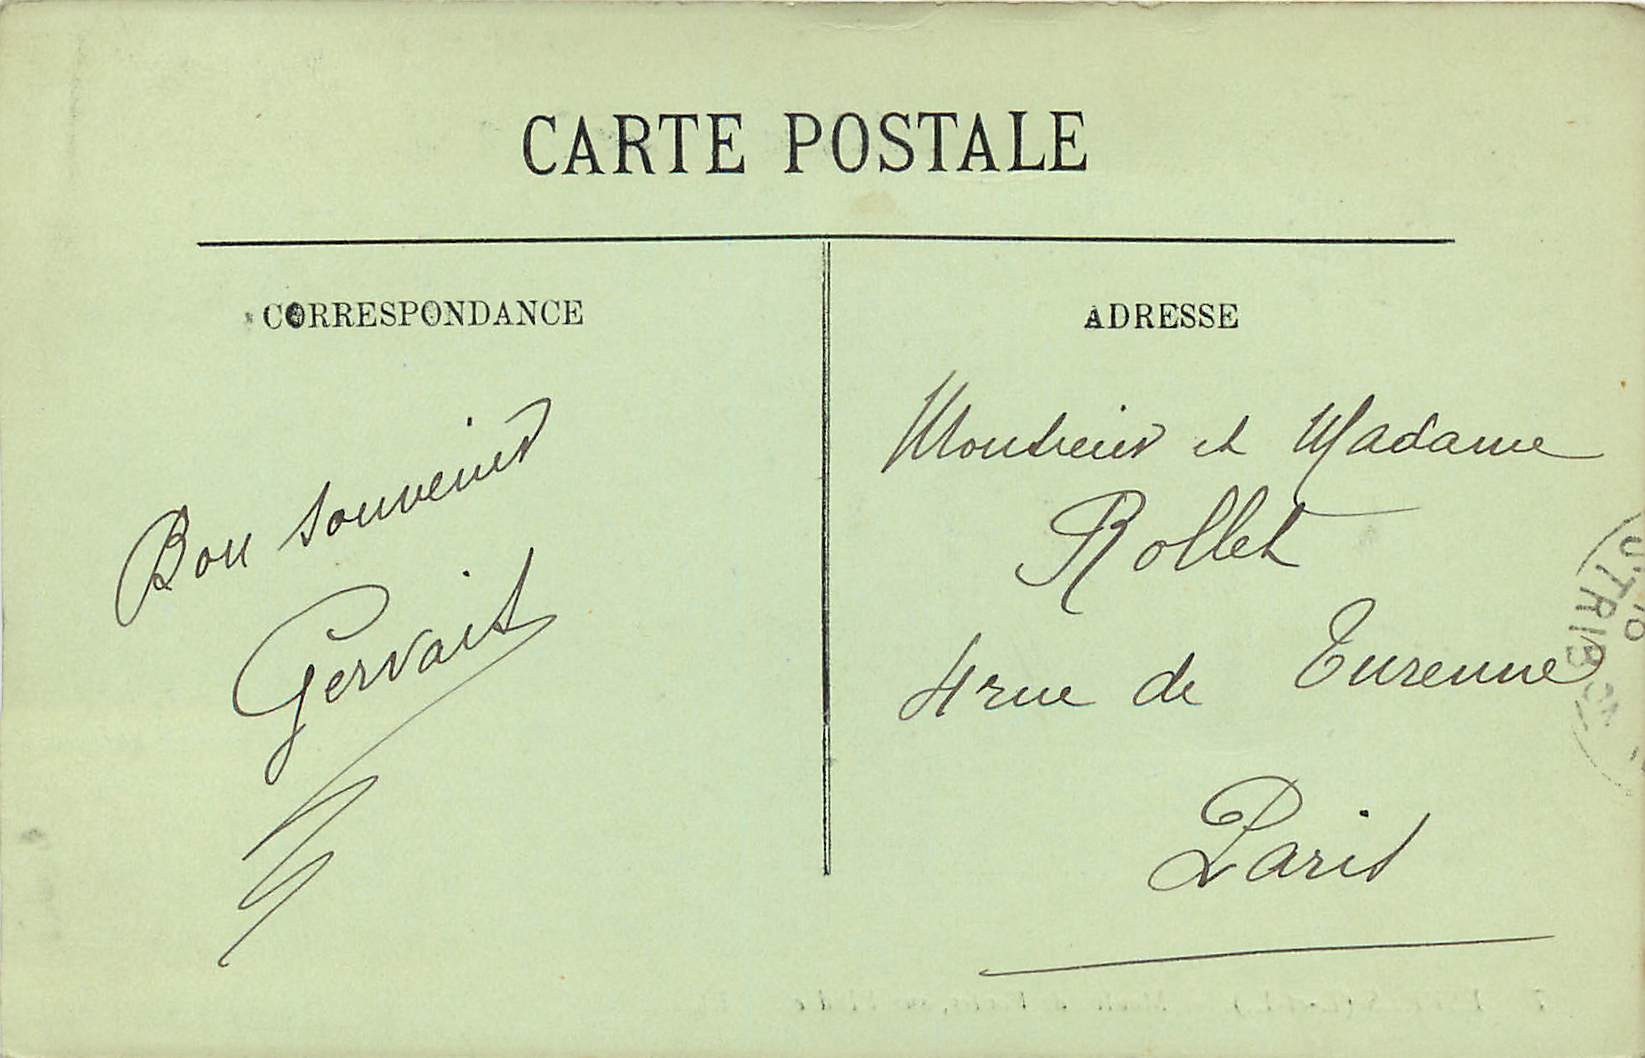 CARTE POSTALE
CORRESPONDANCE
Bon souvenir
Gervais
ADRESSE
Monsieur et Madame
Rollet
4 rue de Turenne
Paris